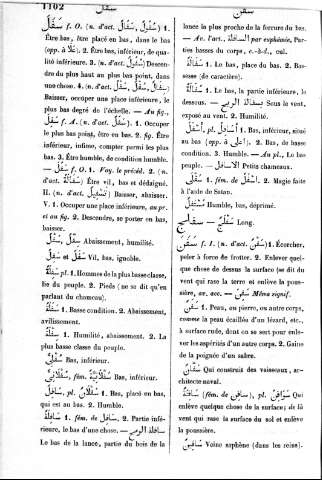 1102
سفل
سفن
سَفَلَ f. O. (n. d'act. سُفُولٌ, سَفَالٌ) 1.
Être bas, être placé en bas, dans le bas
(opp. à عَلَا). 2. Être bas, inférieur, de qua-
lité inférieure. 3. (n. d'act. سُفُولٌ) Descen-
dre du plus haut au plus bas point, dans
une chose. 4. (n. d'act.
Baisser, occuper une place inférieure, le
plus bas degré de l'échelle. —
f. A. (n. d'act. 1. Occuper
le plus bas point, être en bas. 2. fig. Être
inférieur, infime, compter parmi les plus
bas. 3. Être humble, de condition humble.
— سَفُلَ f. O. 1. Voy. le précéd. 2. (n.
d'act. سَفَالَةٌ) Être vil, bas et dédaigné.
II. (n. d'act. تَسْفِيلٌ) Baisser, abaisser.
V. 1. Occuper une place inférieure, au pr.
et au fig. 2. Descendre, se porter en bas,
baisser.
سُفْلٌ, سِفْلٌ Abaissement, humilité.
سِفْلٌ et سُفْلٌ Vil, bas, ignoble.
سَفِلَةٌ pl. 1. Hommes de la plus basse classe,
lie du peuple. 2. Pieds (ne se dit qu'en
parlant du chameau).
1. Basse condition. 2. Abaissement,
avilissement.
1. Humilité, abaissement. 2. La
plus basse classe du peuple.
Bas, inférieur.
سُفْلَانِيٌّ, fém. سُفْلَانِيَّةٌ Bas, inférieur.
سَافِلٌ, pl. 1. Bas, placé en bas,
qui est au bas. 2. Humble.
سَافِلَةٌ 1. fém. de سَافِلٌ. 2. Partie infé-
rieure, le bas d'une chose. — سافلة الرمح
Le bas de la lance, partie du bois de la
lance la plus proche de la ferrure du bas.
— Av. l'act., السافلة par euphémie, Par-
ties basses du corps, c.-à-d., cul.
سَفَالَةٌ 1. Le bas, place du bas. 2. Bas-
sesse (de caractère).
سُفَالَةٌ 1. Le bas, la partie inférieure, le
dessous. — بسفالة الريح Sous le vent,
exposé au vent. 2. Humilité.
أَسْفَلُ, pl. أَسَافِلُ 1. Bas, inférieur, situé
au bas (opp. à أعلى). 2. Bas, de basse
condition. 3. Humble. — Au pl., Le bas
peuple. — الاسافل Petits chameaux.
سُفْلَى 1. fém. de أسفل. 2. Magie faite
à l'aide de Satan.
Humble, bas, déprimé.
سفلج — سَفَلَّجٌ Long.
سَفَنَ f. I. (n. d'act. سَفْنٌ) 1. Écorcher,
peler à force de frotter. 2. Enlever quel-
que chose de dessus la surface (se dit du
vent qui rase la terre et enlève la pous-
sière), av. acc. — سَفِنَ Même signif.
سَفَنٌ 1. Peau, ou pierre, ou autre corps,
comme la peau écaillée d'un lézard, etc.,
à surface rude, dont on se sert pour enle-
ver les aspérités d'un autre corps. 2. Gaine
de la poignée d'un sabre.
سَفَّانٌ Qui construit des vaisseaux, ar-
chitecte naval.
سَافِنَةٌ (fém. de سَافِنٌ), pl. سَوَافِنُ Qui
enlève quelque chose de la surface; de là
vent qui rase la surface du sol et enlève
la poussière.
سَافِنٌ Veine saphène (dans les reins).